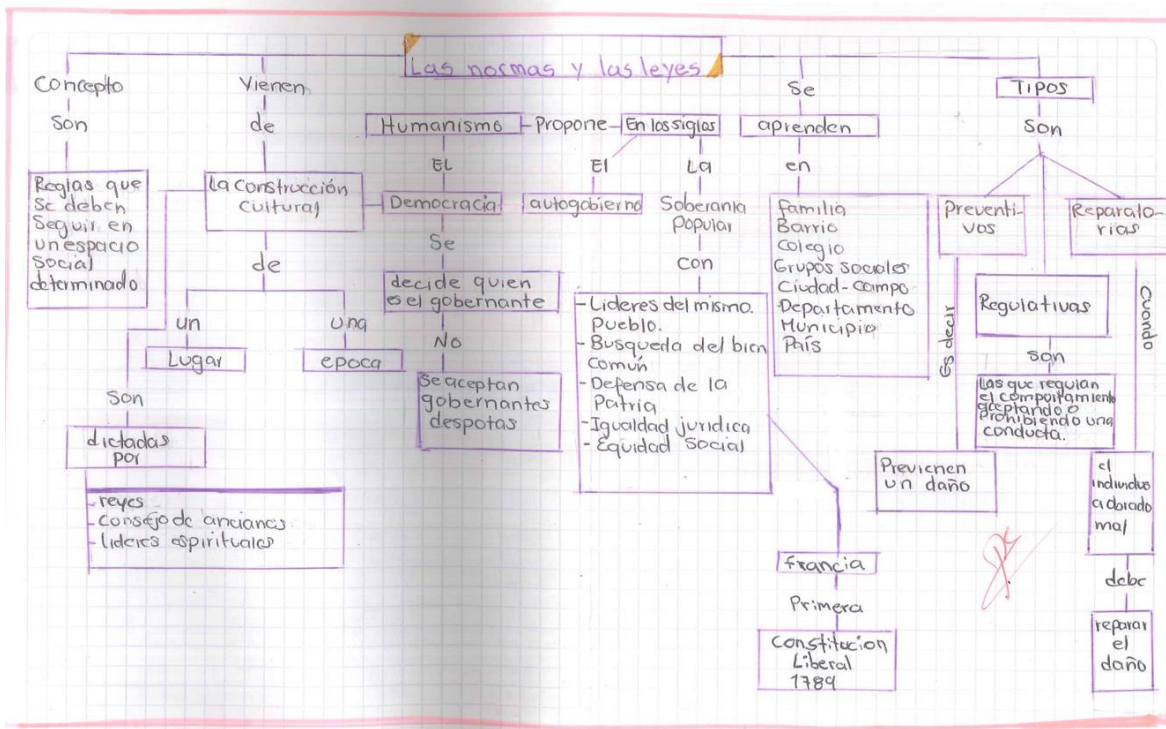 Las normas y las leyes
Concepto
Son
Reglas que
se deben
seguir en
un espacio
social
determinado
Vienen
de
La construcción
cultural
de
un
Lugar
una
epoca
Son
dictadas
por
- reyes
- consejo de ancianos
- lideres espirituales
Humanismo
Propone
En los siglos
EL
Democracia
Se
decide quien
es el gobernante
No
Se aceptan
gobernantes
despotas
El
autogobierno
La
Soberania
Popular
con
- Lideres del mismo.
Pueblo.
- Busqueda del bien
común
- Defensa de la
Patria
- Igualdad juridica
- Equidad Social
francia
Primera
Constitucion
Liberal
1789
Se
aprenden
en
familia
Barrio
Colegio
Grupos sociales
Ciudad-campo
Departamento
Municipio
País
TIPOS
Son
Preventi-
vas
Es decir
Previenen
un daño
Regulativas
son
Las que regulan
el comportamiento
aceptando o
Prohibiendo una
conducta.
Reparato-
rias
Cuando
el
individuo
a obrado
mal
debe
reparar
el
daño